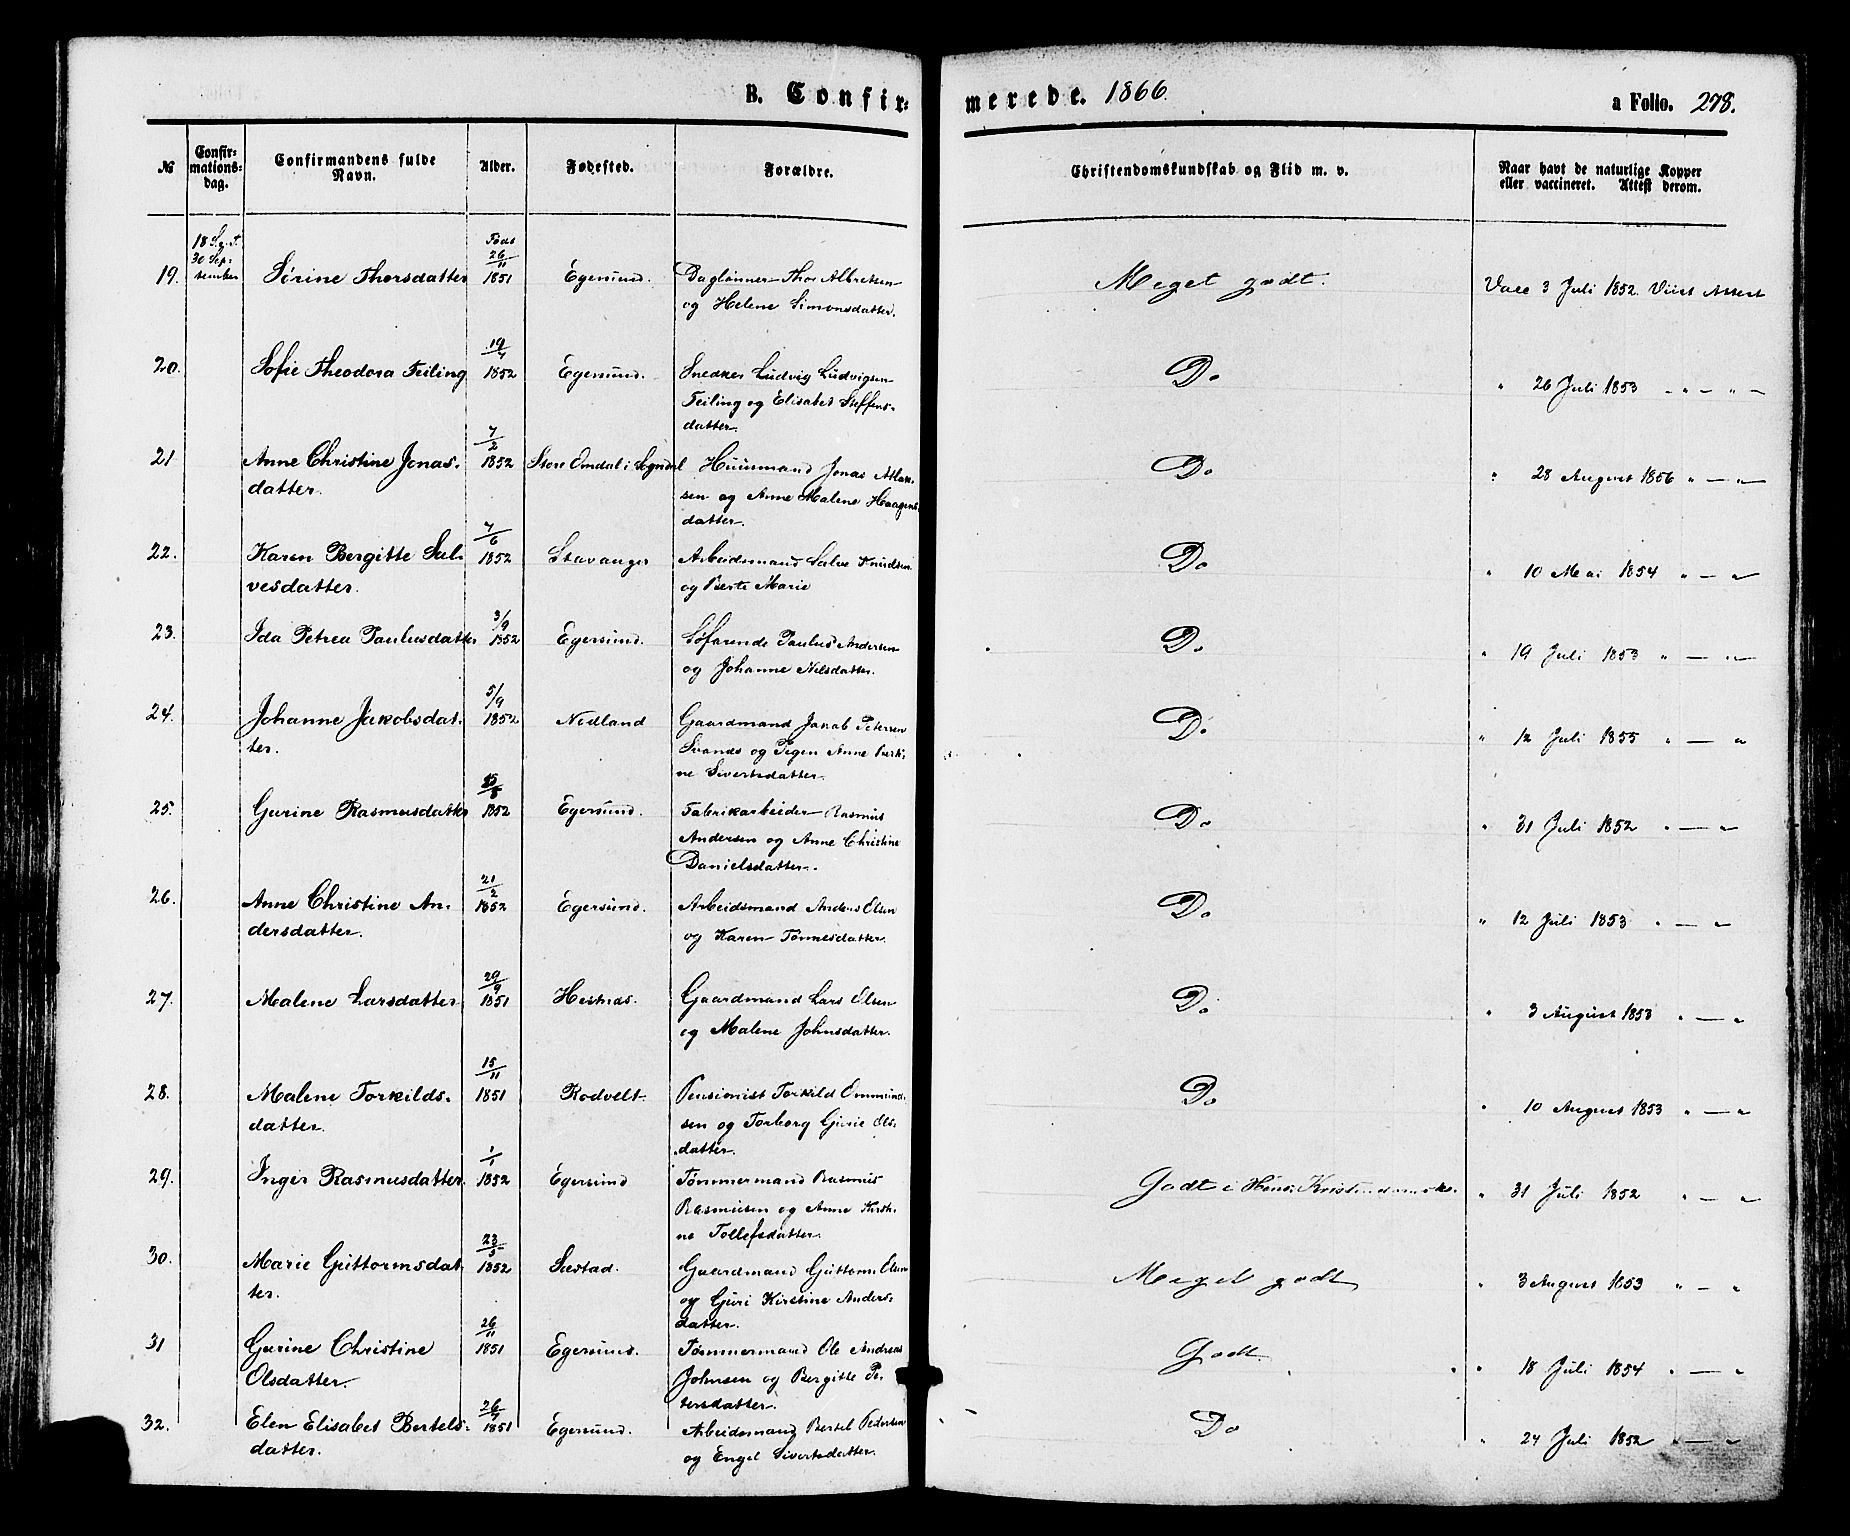 B. Confir-
merede. 1866.
a Folio. 278.
№ Confir-mations-dag. Confirmandens fulde Navn. Alder. Fødested. Forældre. Christendomskundskab og Flid m. v. Naar havt de naturlige Kopper eller vaccineret. Attest derom.
30 Sep-
tember
Født
19. Sirine Thorsdatter 26/11 1851 Egersund. Daglønner Thor Albretsen Meget godt. Vacc 3 Juli 1852. Viist Attest
og Helene Simonsdatter.
20. Sofie Theodora Feiling 19/4 1852 Egersund. Snedker Ludvig Ludvigsen Do " 26 Juli 1853 " — " —
Feiling og Elisabet Steffens-
datter.
21 Anne Christine Jonas- 7/2 1852 Store Omdal i Sogndal Huusmand Jonas Atlak- Do " 28 August 1856 " — "
datter. sen og Anne Malene Haagens-
datter.
22. Karen Bergitte Sal- 7/6 1852 Stavanger Arbeidsmand Salve Knudsen Do " 10 Mai 1854 " — "
vesdatter. og Berte Marie
23. Ida Petrea Paulusdatter 3/9 1852 Egersund. Søfarende Paulus Andersen Do " 19 Juli 1853 " — "
og Johanne Nilsdatter.
24. Johanne Jakobsdat- 5/9 1852 Nodland Gaardmand Jakob Petersen Do " 12 Juli 1855 " — "
ter. Svanes og Pigen Anne Kirsti-
ne Sivertsdatter.
25. Gurine Rasmusdatter 1852 Egersund. Fabrikarbeider Rasmus Do " 31 Juli 1852 " — "
Andersen og Anne Christine
Danielsdatter.
26. Anne Christine An- 21/2 1852 Egersund. Arbeidsmand Anders Olsen Do " 12 Juli 1853 " — "
dersdatter. og Karen Tønnesdatter.
27. Malene Larsdatter. 29/9 1851 Hestnæs. Gaardmand Lars Olsen Do " 3 August 1853 " — "
og Malene Johnsdatter.
28. Malene Torkilds- 15/11 1851 Rodvelt. Pensionist Torkild Ommund- Do " 10 August 1853 " — "
datter. sen og Torborg Gurie Ols-
datter.
29. Inger Rasmusdatter. 1/1 1852 Egersund Tømmermand Rasmus Godt i Hens. Kristendomsk. " 31 Juli 1852 " — "
Rasmusen og Anne Kirsti-
ne Tollefsdatter.
30. Marie Guttormsdat- 23/5 1852 Sæstad. Gaardmand Guttorm Olsen Meget godt " 3 August 1853 " — "
ter. og Guri Kirstine Anders-
datter.
31 Gurine Christine 26/11 1851 Egersund. Tømmermand Ole Andreas Godt. " 18 Juli 1854 " — "
Olsdatter. Johnsen og Bergitte Pe-
tersdatter.
32. Elen Elisabet Bertels- 1851 Egersund. Arbeidsmand Bertel Pedersen Do " 24 Juli 1852 " — "
datter. og Engel Sivertsdatter.